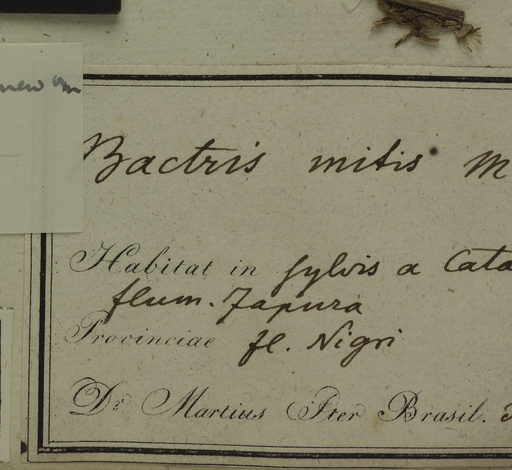 new
Bactris mitis M
Habitat in sylvis a Cata
flum. Japura
Provinciae fl. Nigri
Dr. Martius Iter Brasil.